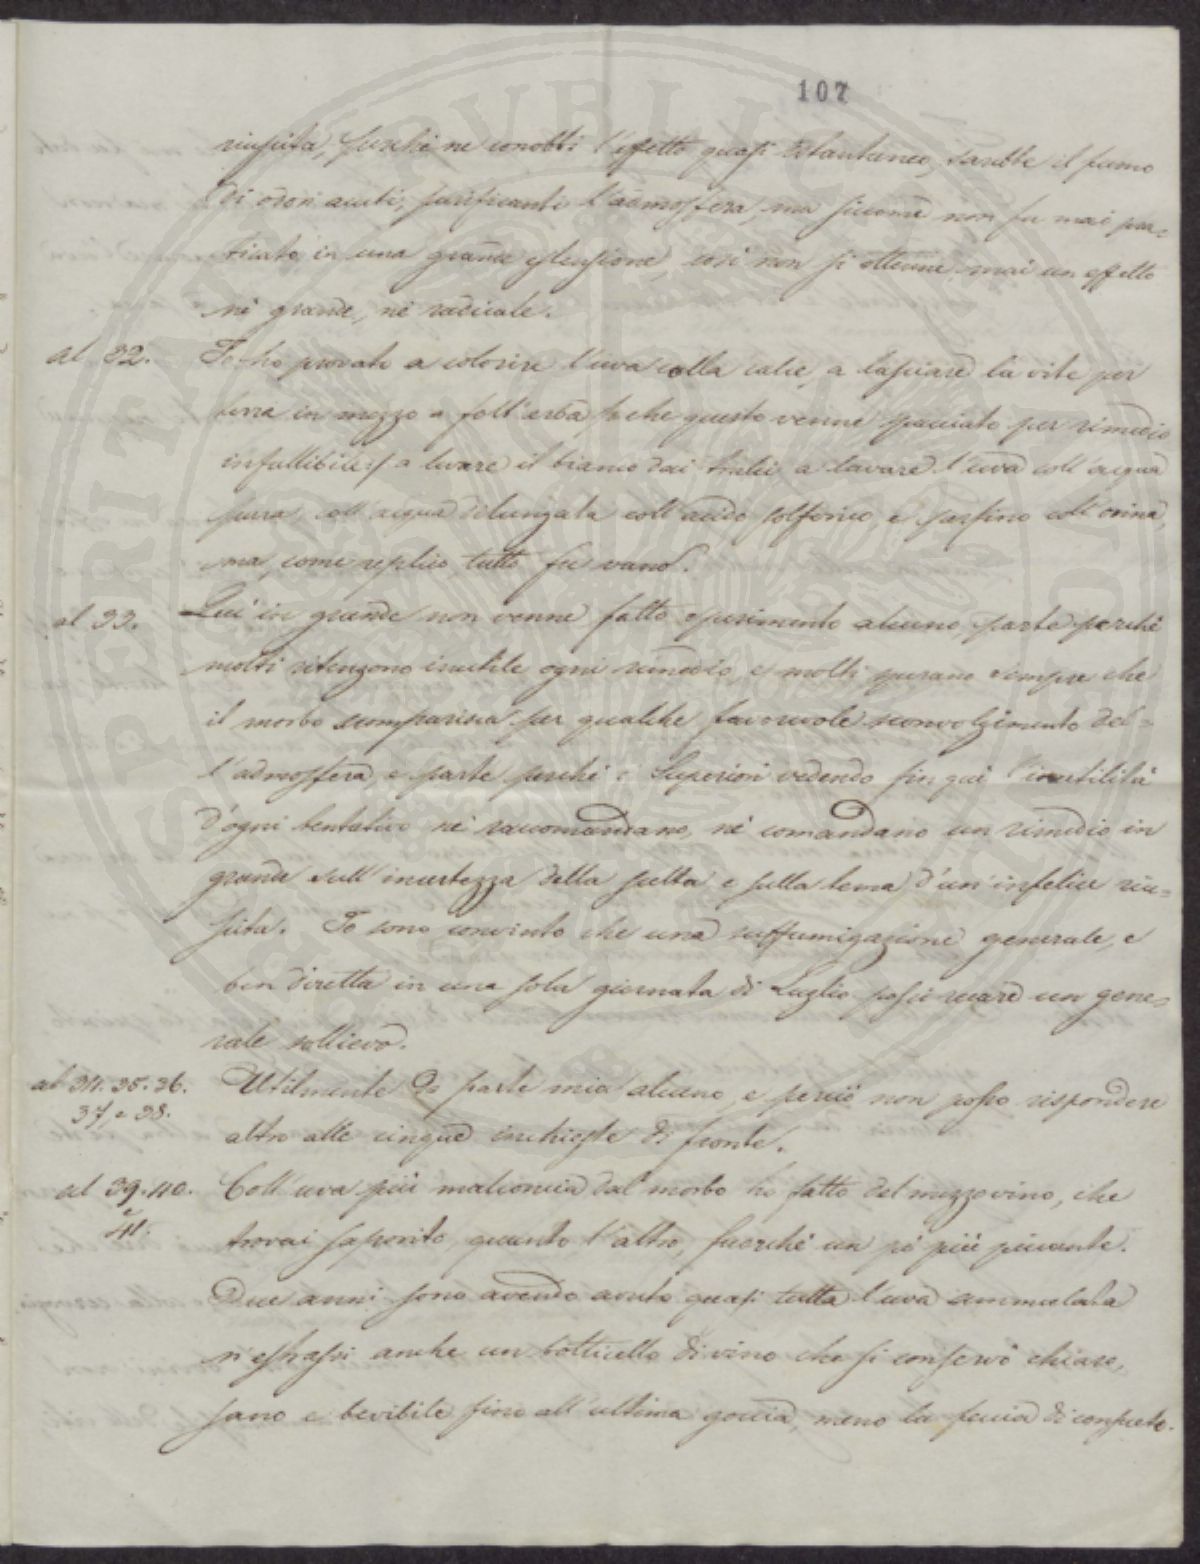 107
riuscita, perchè ne conobbi l'effetto quasi istantaneo, sarebbe il fumo
di odori acuti, purificanti l'admosfera, ma siccome non fu mai pra=
ticato in una grande estensione, così non si ottenne mai un effetto
nè grande, nè radicale.
al 32. Io ho provato a colorire l'uva colla calce, a lasciare la vite per
terra in mezzo e sott'erba /: che questo venne spacciato per rimedio
infallibile :/ a levare il bianco dai tralci a lavare l'uva coll'acqua
pura, coll'acqua dilungata coll'acido solforico, e perfino coll'orina,
ma, come replico, tutto fu vano.
al 33. Qui in grande non venne fatto esperimento alcuno, parte perchè
molti ritengono inutile ogni rimedio, e molti sperano sempre che
il morbo scomparisca per qualche favorevole sconvolgimento del=
l'admosfera, e parte perchè i Superiori vedendo fin quì l'inutilità
d'ogni tentativo nè raccomandano, nè comandano un rimedio in
grande sull'incertezza della scelta e sulla tema d'un'infelice riu=
scita. Io sono convinto che una suffumigazione generale, e
ben diretta in una sola giornata di Luglio possi recare un gene=
rale sollievo.
al 34. 35. 36. Utilmente da parte mia alcuno, e perciò non posso rispondere
37, e 38.
altro alle cinque inchieste di fronte.
al 39. 40. Coll'uva più malconcia dal morbo ho fatto del mezzovino, che
e 41.
trovai saporito quanto l'altro, fuorchè un pò più piccante.
Due anni sono avendo avuto quasi tutta l'uva ammalata
n'estrassi anche un botticello di vino che si conservò chiaro,
sano e bevibile fino all'ultima goccia, meno la feccia di consueto.